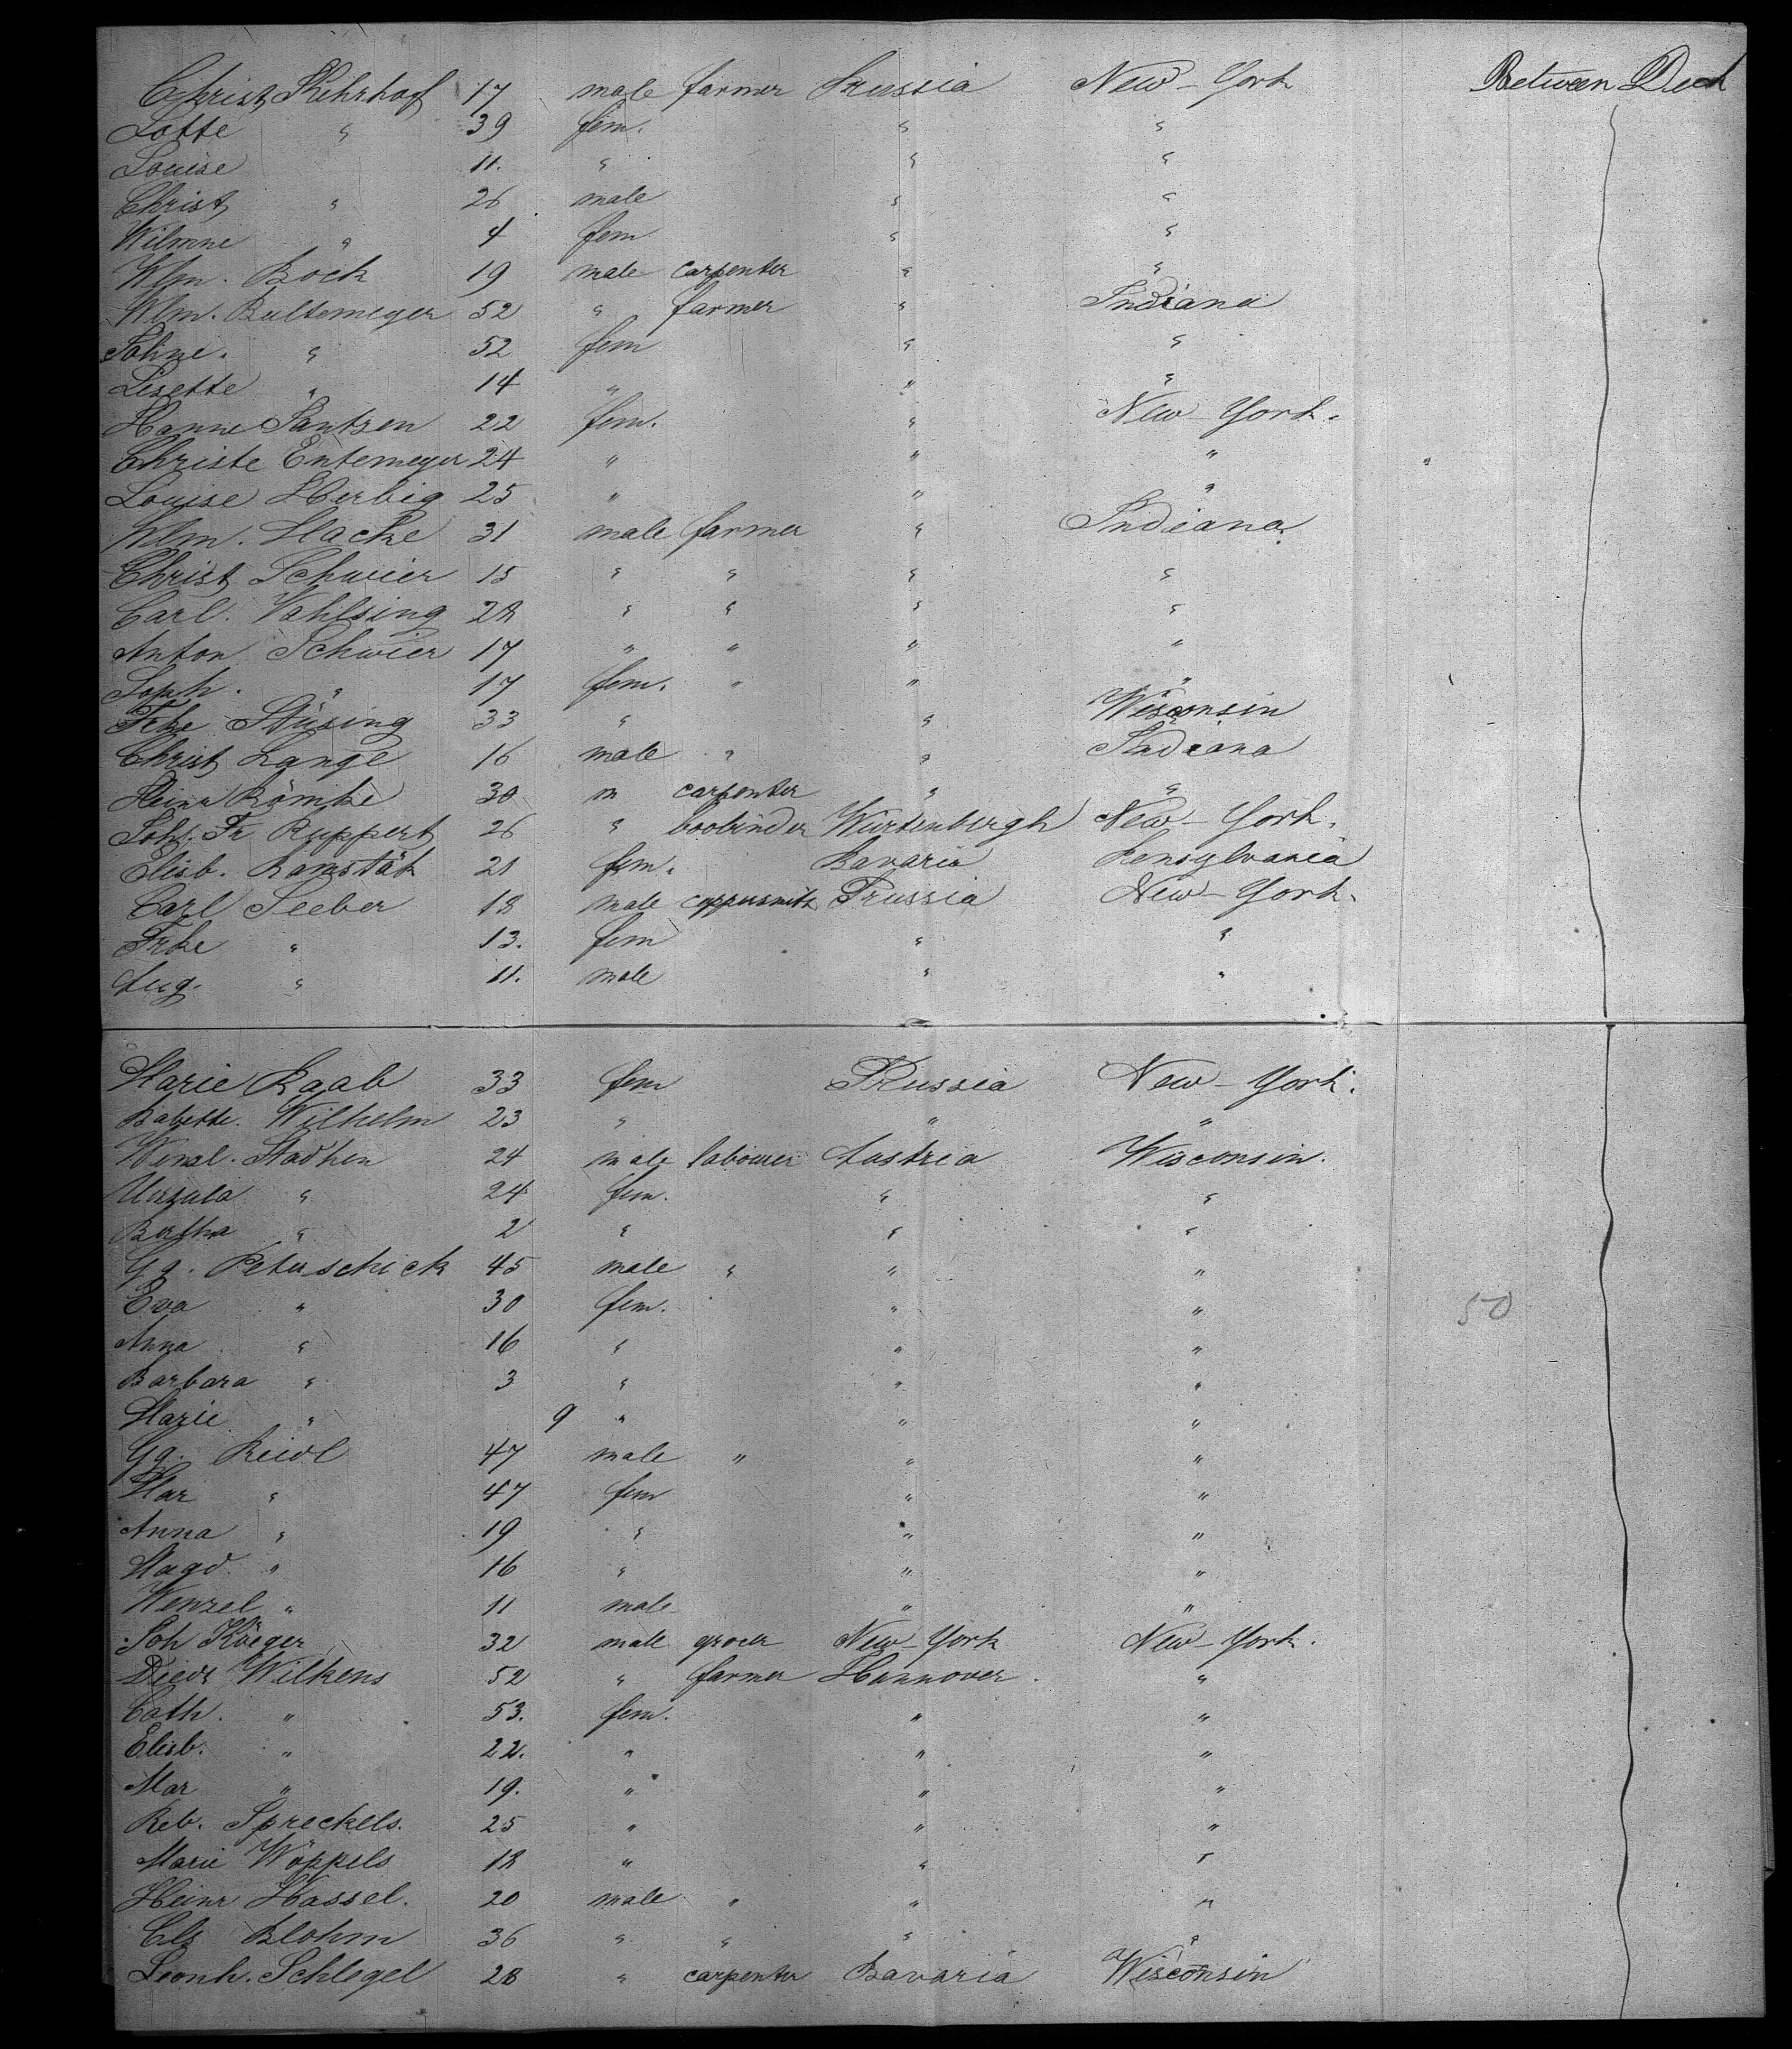 Christ Kehrhof 17 male farmer Prussia New-York Between Deck
Lotte " 39 fem. " "
Louise 11. " " "
Christ " 26 male " "
Wilmne " 4 fem " "
Wlm. Bock 19 male carpenter " "
Wlm. Bultemeyer 52 " farmer " Indiana
Sohne. " 52 fem " "
Lisette " 14 " " "
Hanne Santsen 22 fem. " New-York.
Christe Entemeyer 24 " " "
Louise Herbig 25 " " "
Wlm. Hacke 31 male farmer " Indiana
Christ Schwier 15 " " " "
Carl. Vahlsing 28 " " " "
Anton Schwier 17 " " " "
Soph. " 17 fem. " " "
Frke Stüsing 33 " " Wisconsin
Christ Lange 16 male " " Indiana
Heinr Römke 30 m carpenter " "
Joh. Fr Ruppert 26 " boobinder Würtenbergh New-York.
Elisb. Ramstät 21 fem. Bavaria Pensylvania
Carl Seeber 18 male coppusmith Prussia New-York.
Frke " 13. fem " "
Aug. " 11. male " "
Marie Raab 33 fem Prussia New-York.
Babette. Wilhelm 23 " " "
Wenzl. Stadhen 24 male labourer Austria Wisconsin.
Ursula " 24 fem. " "
Bertha " 2 " " "
Gg. Peterschick 45 male " " "
Eva " 30 fem. " " 50
Anna " 16 " " "
Barbara " 3 " " "
Marie " 9 " " "
Gg. Reidl 47 male " " "
Mar " 47 fem " "
Anna " 19 " " "
Magd. " 16 " " "
Wenzel " 11 male " "
Joh Krüger 32 male grocer New-York New-York.
Diedr Wilkens 52 " farmer Hannover. "
Cath. " 53. fem. " "
Elisb. " 22. " " "
Mar " 19. " " "
Reb. Spreckels. 25 " " "
Marie Wöppels 18 " " "
Heinr Hassel. 20 male " " "
Cls Blohm 36 " " " "
Leonh. Schlegel 28 " carpenter Bavaria Wisconsin